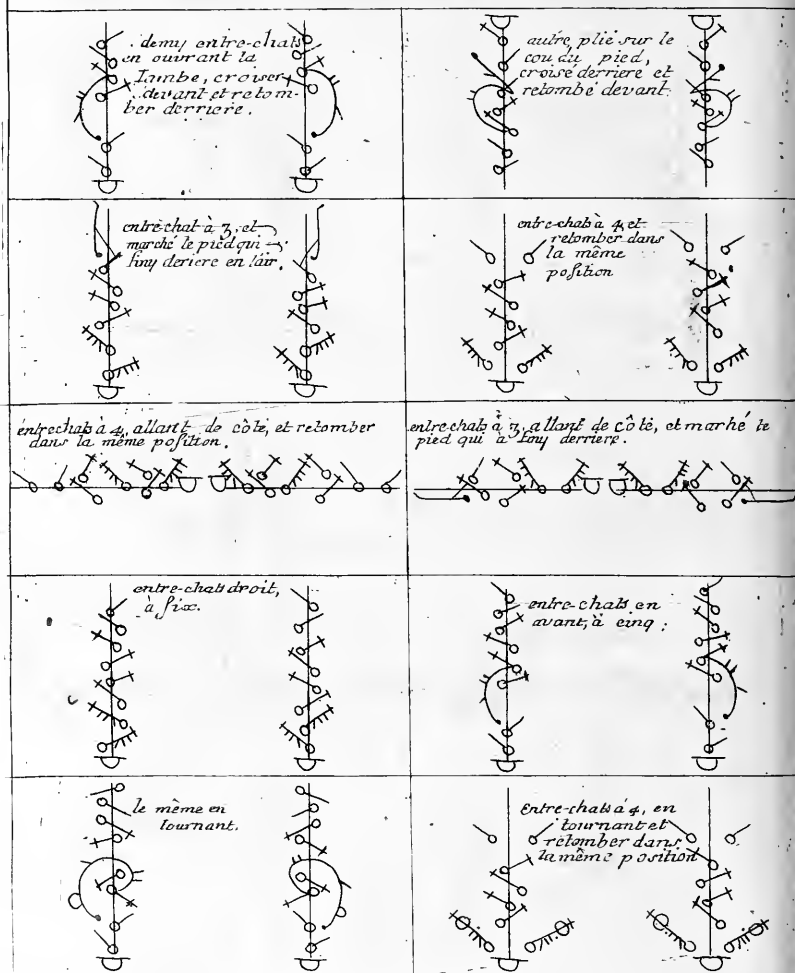 demy entre-chats
en ouvrant la
Iambe, croiser
devant et retom-
ber derriere.
autre, plié sur le
cou du pied,
croisé derriere et
retombé devant.
entre chat à 3, et
marché le pied qui
finy deriere en l'air.
entre-chats à 4, et
retomber dans
la même
position
entrechats à 4, allant de côté, et retomber
dans la même position.
entre-chats à 3, allant de côté, et marhé le
pied qui à finy derriere.
entre-chats droit,
à six.
entre-chats en
avant, à cinq.
le même en
tournant.
Entre-chats à 4, en
tournant et
retomber dans
la même position